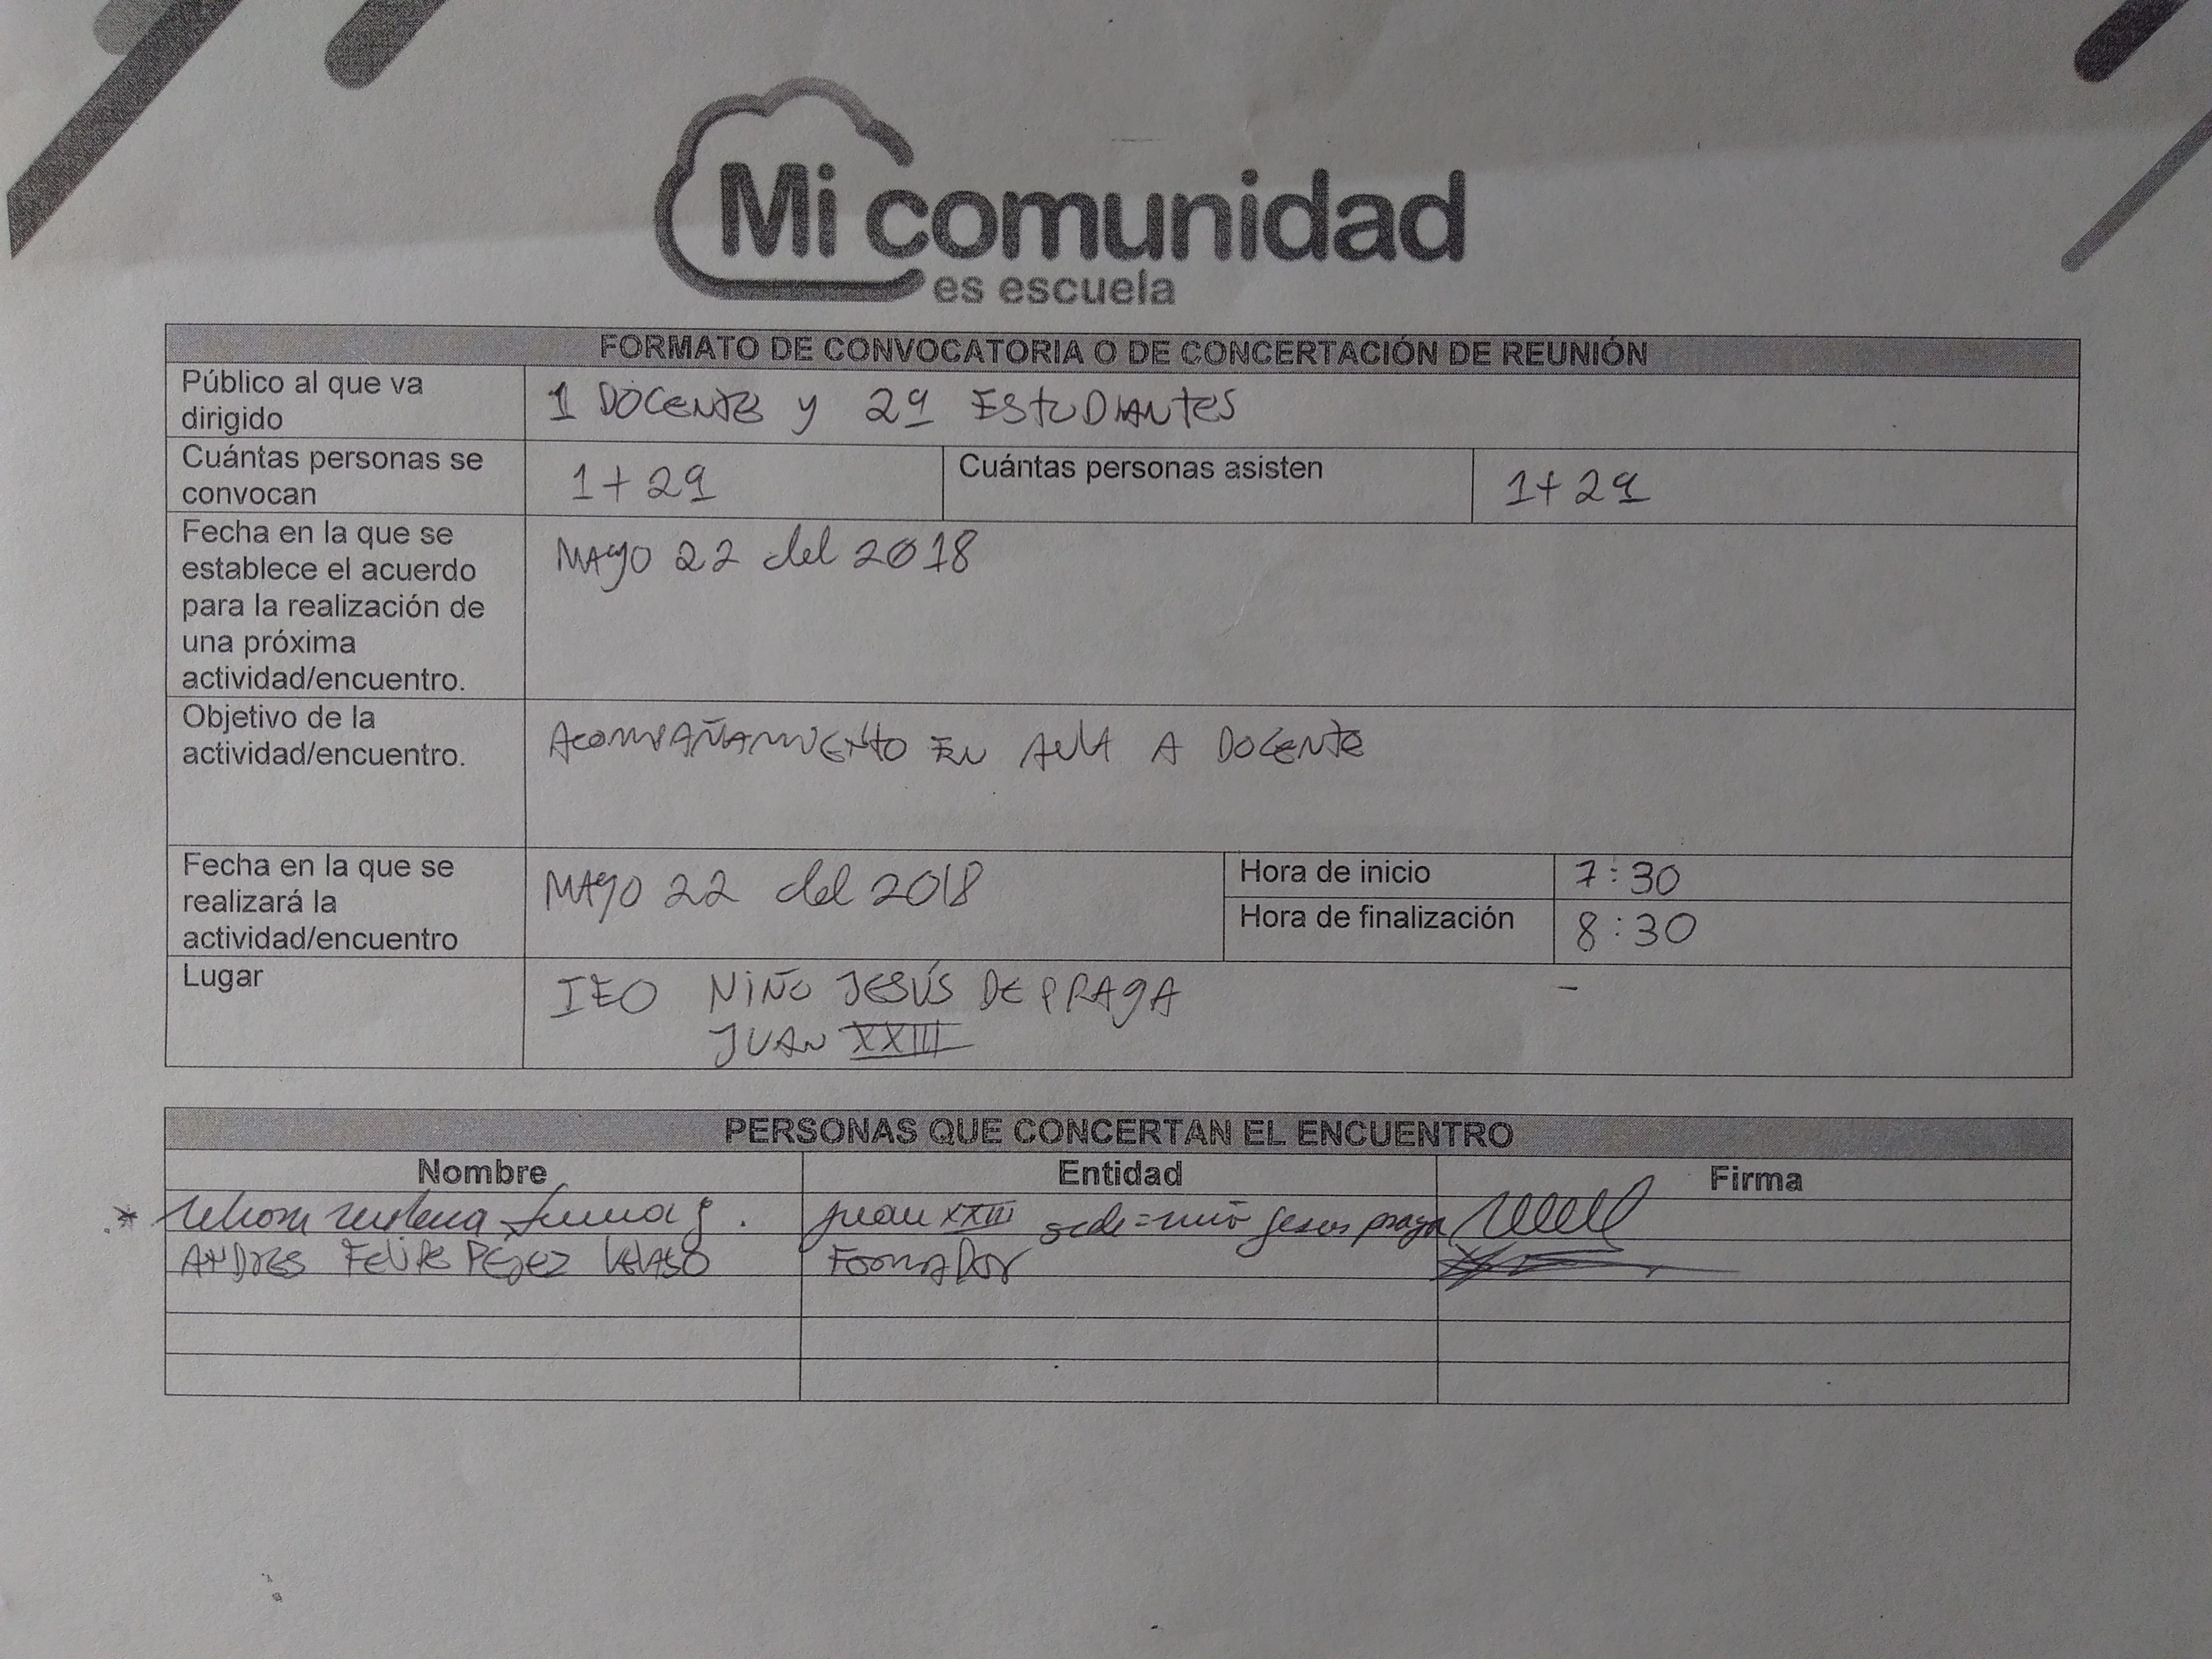 Mi comunidad
es escuela
FORMATO DE CONVOCATORIA O DE CONCERTACIÓN DE REUNIÓN
Público al que va
dirigido
1 DOCENTE y 29 ESTUDIANTES
Cuántas personas se
convocan
1+29
Cuántas personas asisten
1+29
Fecha en la que se
establece el acuerdo
para la realización de
una próxima
actividad/encuentro.
MAYO 22 del 2018
Objetivo de la
actividad/encuentro.
ACOMPAÑAMIENTO EN AULA A DOCENTE
Fecha en la que se
realizará la
actividad/encuentro
MAYO 22 del 2018
Hora de inicio
7:30
Hora de finalización
8:30
Lugar
IEO NIÑO JESÚS DE PRAGA
JUAN XXIII
PERSONAS QUE CONCERTAN EL ENCUENTRO
Nombre
Entidad
Firma
Juan XXIII sede = niño Jesus praga
ANDRES FELIPE PEREZ VELASO
Formador